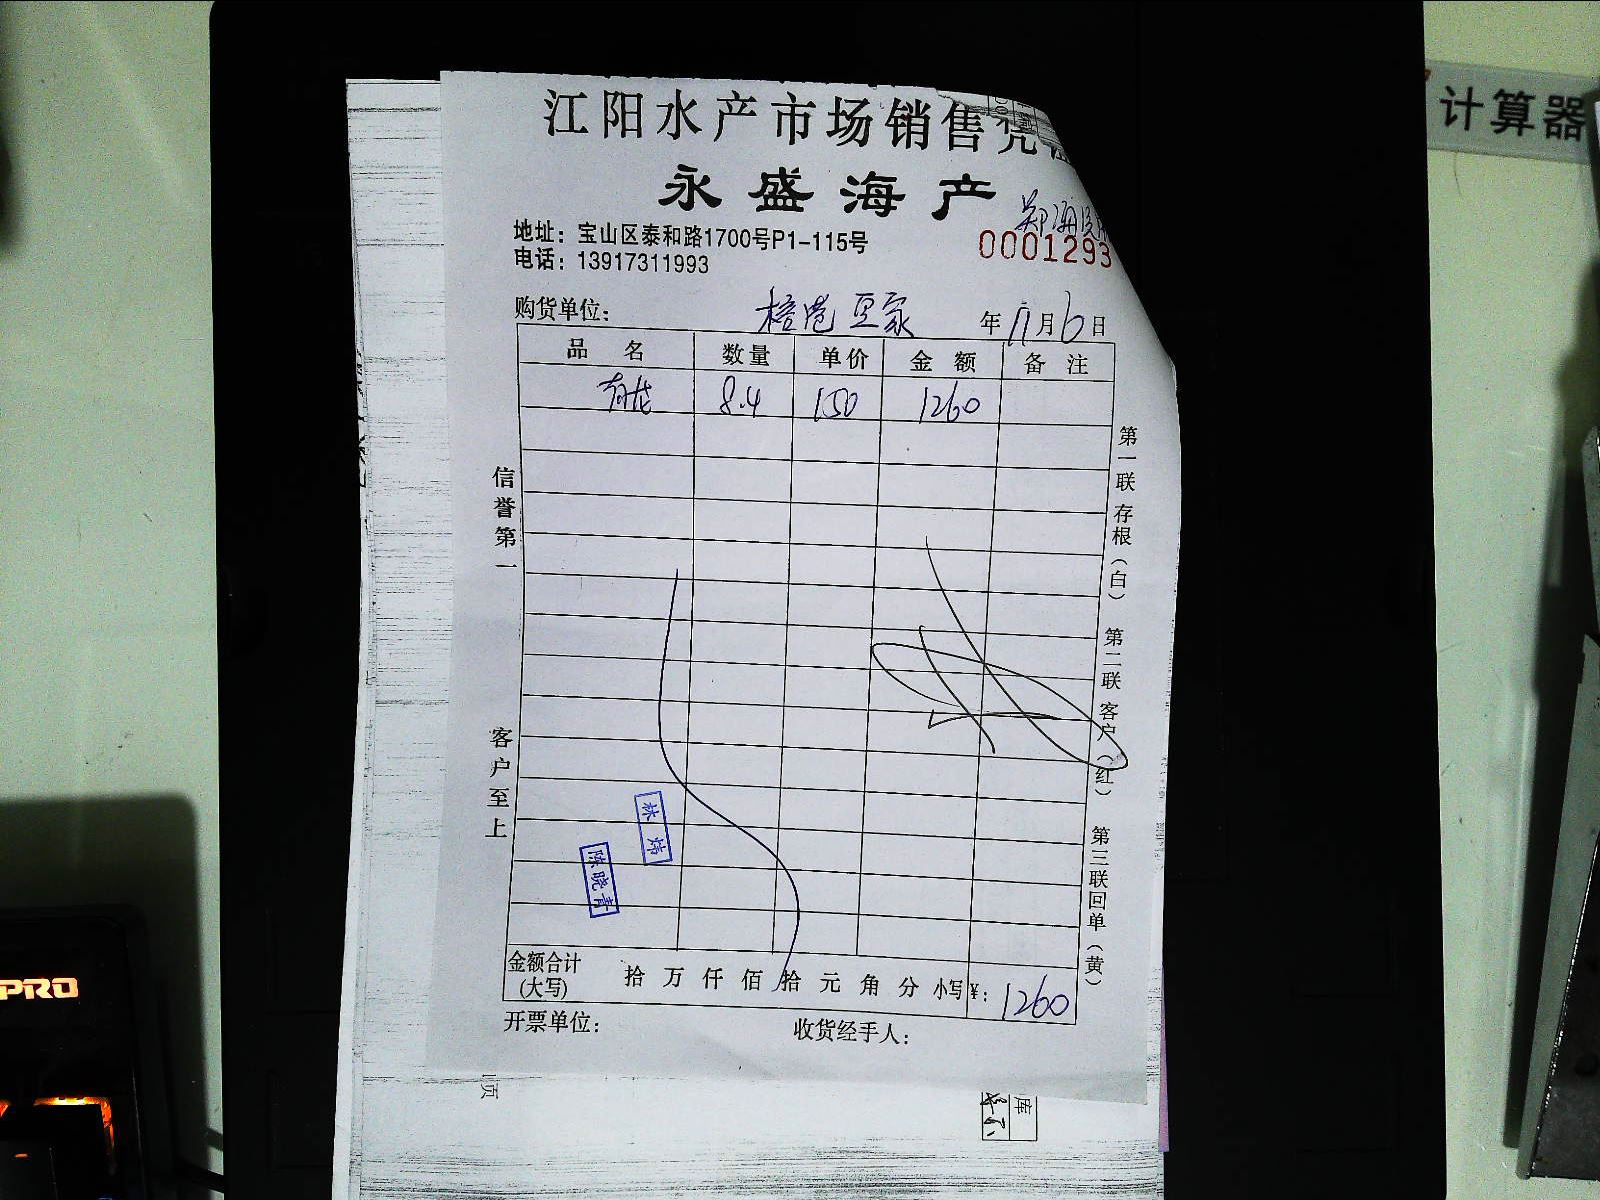 江阳水产市场销售凭
永盛海产
地址：宝山区泰和路1700号P1-115号
0001293
电话：13917311993
购货单位：
年 11月6日
品名 数量 单价 金额 备注
8.4 150 1260
信誉第一
客户至上
第一联存根（白） 第二联客户（红） 第三联回单（黄）
林炜
陈晓青
金额合计（大写） 拾 万 仟 佰 拾 元 角 分 小写¥：1260
开票单位： 收货经手人：
页
库
计算器
PRO